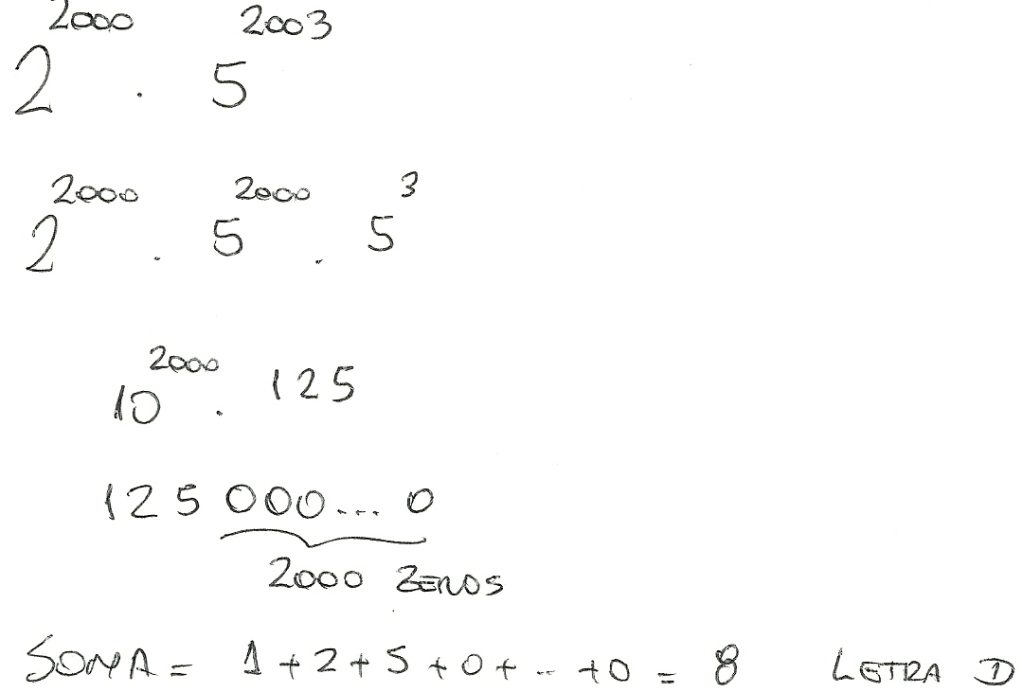 2^2000 . 5^2003
2^2000 . 5^2000 . 5^3
10^2000 . 125
125 000... 0
2000 ZEROS
SOMA = 1 + 2 + 5 + 0 + ... + 0 = 8 LETRA D